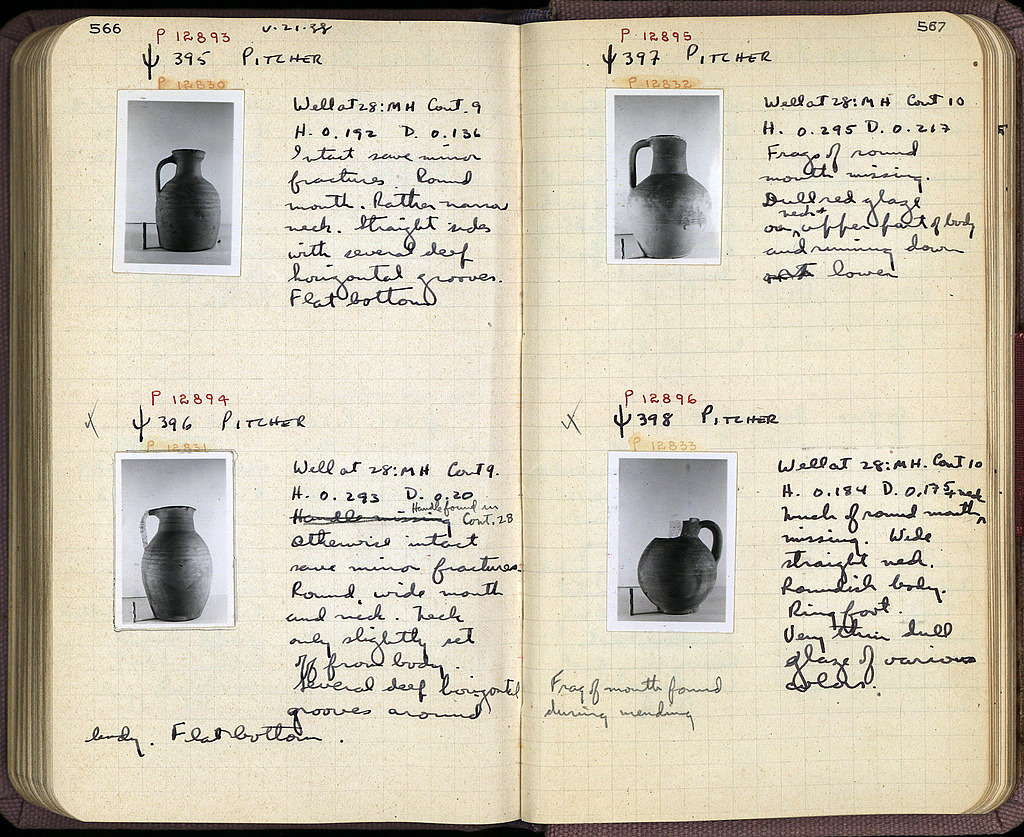 566
v.21.38
P 12893
ψ 395 PITCHER
P 12830
Well at 28:MH Cont. 9
H. 0.192 D. 0.136
Intact save minor
fractures. Round
mouth. Rather narrow
neck. Straight sides
with several deep
horizontal grooves.
Flat bottom
P 12894
ψ 396 PITCHER
P 12831
Well at 28:MH Cont 9.
H. 0.293 D. 0.20
Handle missing Handle found in Cont. 28
Otherwise intact
save minor fractures.
Round, wide mouth
and neck. Neck
only slightly set
off from body.
Several deep horizontal
grooves around
body. Flat bottom.
567
P 12895
ψ 397 PITCHER
P 12832
Well at 28:MH Cont 10
H. 0.295 D. 0.217
Frags of round
mouth missing.
Dull red glaze
on neck + upper part of body
and running down
lower
P 12896
ψ 398 PITCHER
P 12833
Well at 28:MH. Cont 10
H. 0.184 D. 0.175
Much of round mouth + neck
missing. Wide
straight neck.
Roundish body.
Ring foot.
Very thin dull
glaze of various
colors.
Frag of mouth found
during mending